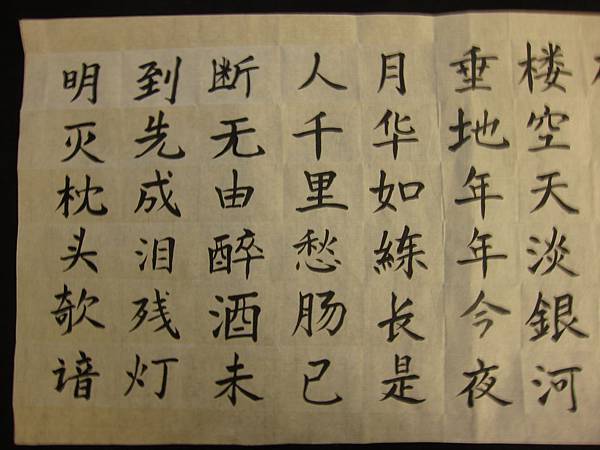 楼空天淡銀河
垂地年年今夜
月华如練长是
人千里愁肠已
断无由醉酒未
到先成泪残灯
明灭枕头欹谙